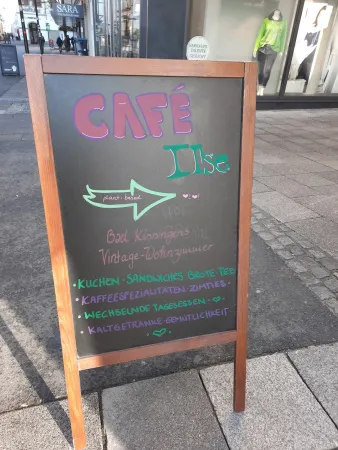 SARA
CAFÉ
Ilse
plant-based
Bad Kissingens
Vintage-Wohnzimmer
• KUCHEN • SANDWICHES BROTE TEO
• KAFFEESPEZIALITÄTEN ZIMTIES
• WECHSELNDE TAGESESSEN
• KALTGETRÄNKE GEMÜTLICHKEIT